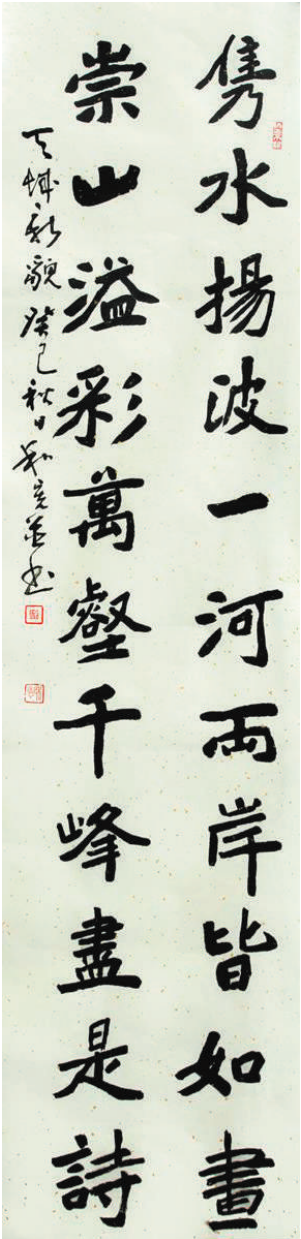 隽水揚波一河兩岸皆如畫
崇山溢彩萬壑千峰盡是詩
天城新貌癸巳秋日